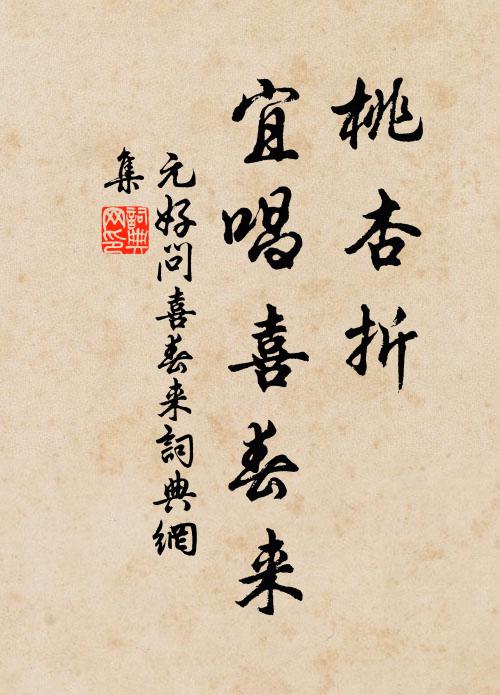 桃杏折
宜唱喜春来
元好问喜春来詞典網
集
詞典网印